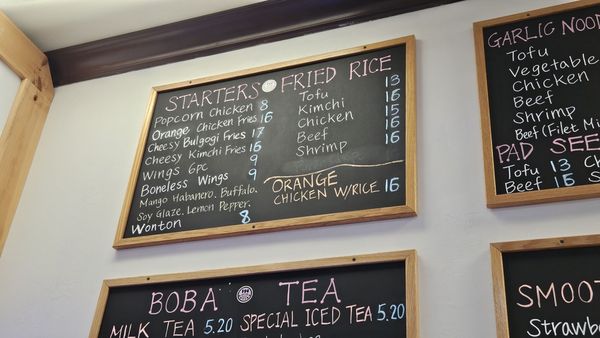 STARTERS
Popcorn Chicken 8
Orange Chicken Fries 16
Cheesy Bulgogi Fries 17
Cheesy Kimchi Fries 16
Wings 6pc 9
Boneless Wings 9
Mango Habanero. Buffalo.
Soy Glaze. Lemon Pepper.
Wonton 8
FRIED RICE
Tofu 13
Kimchi 16
Chicken 15
Beef 16
Shrimp 16
ORANGE
CHICKEN W/RICE 16
GARLIC NOO
Tofu
Vegetable
Chicken
Beef
Shrimp
Beef (Filet Mi
PAD SEE
Tofu 13 Ch
Beef 15 S
BOBA TEA
MILK TEA 5.20 SPECIAL ICED TEA 5.20
SMOOT
Strawb